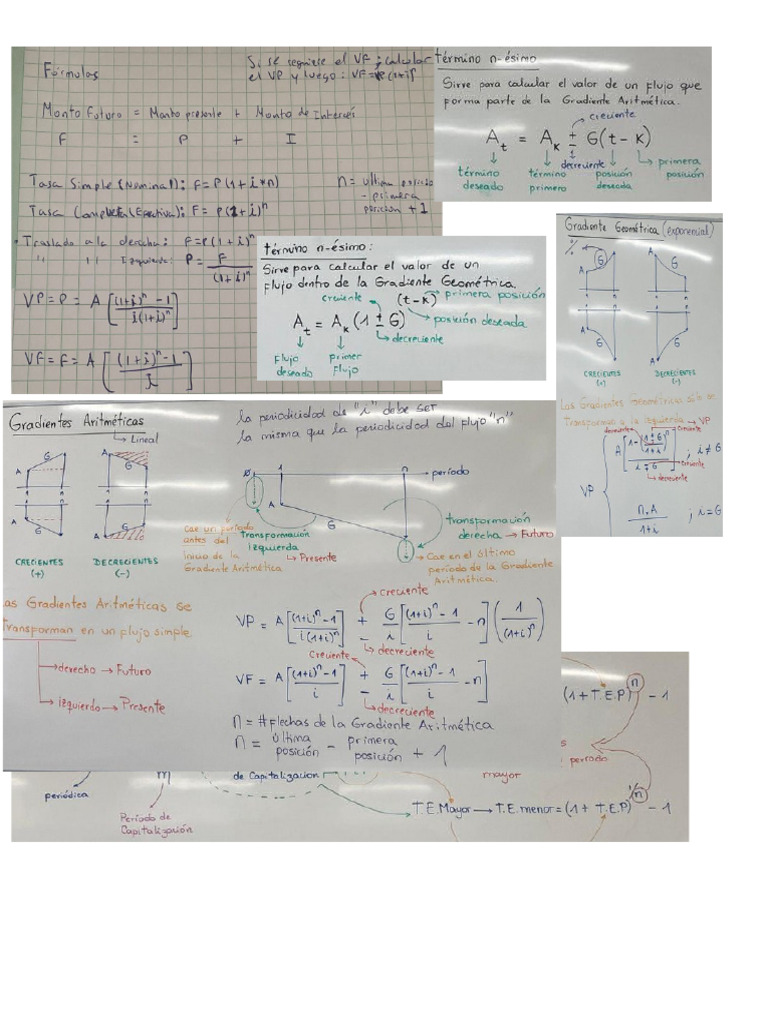 Fórmulas
Si se requiere el VF ; calcular
el VP y luego : VF = P(1+i)ⁿ
Monto Futuro = Monto presente + Monto de Interés
F = P + I
Tasa Simple (Nominal): F = P(1 + i*n)
Tasa Compuesta (Efectiva): F = P(1+i)ⁿ
n = última posición
- primera
posición + 1
Traslado a la derecha: F = P(1+i)ⁿ
" " " Izquierda: P = F / (1+i)ⁿ
VP = P = A[((1+i)ⁿ - 1) / (i(1+i)ⁿ)]
VF = F = A[((1+i)ⁿ - 1) / i]
término n-ésimo
Sirve para calcular el valor de un flujo que
forma parte de la Gradiente Aritmética.
creciente
At = Ak ± G(t - k)
decreciente
término deseado
término primero
posición deseada
primera posición
término n-ésimo:
Sirve para calcular el valor de un
flujo dentro de la Gradiente Geométrica.
creciente
(t-k) primera posición
At = Ak (1 ± G)
posición deseada
decreciente
Flujo deseado
primer Flujo
Gradiente Geométrica (exponencial)
% G A
A G
1 n 1 n
A G
A G
CRECIENTES (+)
DECRECIENTES (-)
Las Gradientes Geométricas sólo se
Transforman a la izquierda → VP
decreciente
Creciente
VP { A[(1 - ((1 ± G)/(1+i))ⁿ) / (i ∓ G)] ; i ≠ G
Creciente
decreciente
n.A / 1+i ; i = G
Gradientes Aritméticas
Lineal
G A G
1 n 1 n
A G A G
CRECIENTES (+)
DECRECIENTES (-)
la periodicidad de "i" debe ser
la misma que la periodicidad del flujo "n"
Ø 1 n → período
A G
Cae un período
antes del
inicio de la
Gradiente Aritmética
Transformación
izquierda
Presente
transformación
derecha → Futuro
Cae en el último
período de la Gradiente
Aritmética.
Las Gradientes Aritméticas se
Transforman en un flujo simple.
derecho → Futuro
izquierdo → Presente
creciente
VP = A[((1+i)ⁿ - 1) / (i(1+i)ⁿ)] ± G/i [((1+i)ⁿ - 1)/i - n] (1/(1+i)ⁿ)
decreciente
Creciente
VF = A[((1+i)ⁿ - 1) / i] ± G/i [((1+i)ⁿ - 1)/i - n]
decreciente
n = # Flechas de la Gradiente Aritmética
n = última posición - primera posición + 1
(1 + T.E.P)ⁿ - 1
período
periódica
m
Período de
Capitalización
de Capitalización
mayor
T.E.Mayor → T.E.menor = (1 + T.E.P)^(1/n) - 1